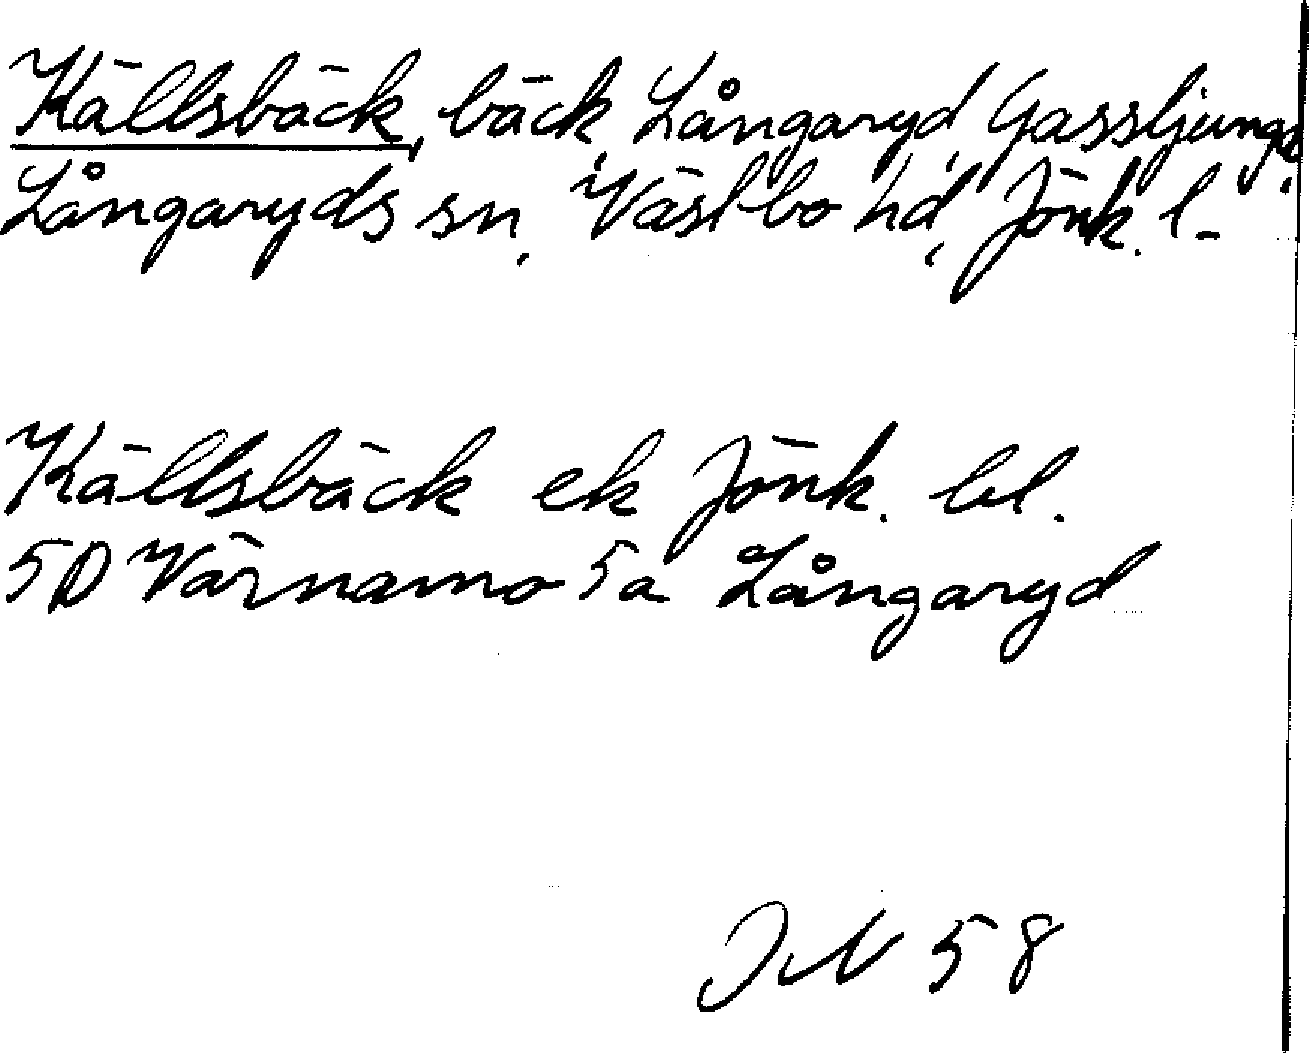 Källsbäck, bäck, Långaryd, Gassljunga,
Långaryds sn, Västbo hd, Jönk. l.
Källsbäck ek Jönk. bl.
5D Värnamo 5a Långaryd
58